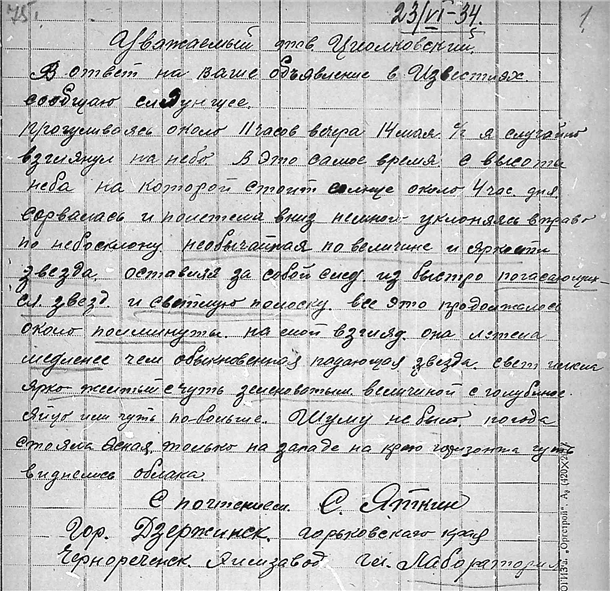 75.
23/VI-34.
1
Уважаемый тов. Циолковский,
В ответ на ваше объявление в Известиях
сообщаю следующее.
Прогуливаясь около 11 часов вечера 14 мая с/г я случайно
взглянул на небо. В это самое время с высоты
неба на которой стоит солнце около 4 час. дня
сорвалась и полетела вниз немного уклоняясь вправо
по небосклону необычайная по величине и яркости
звезда, оставляя за собой след из быстро погасающих-
ся звезд и светлую полоску. все это продолжалось
около полминуты. на мой взгляд она летела
медленее чем обыкновенная падающая звезда. свет имела
ярко желтый с чуть зеленоватым величиной с голубиное
яйцо или чуть по-больше. Шуму не было погода
стояла ясная, только на западе на краю горизонта чуть
виднелось облака.
С почтением С. Яткин
Гор. Дзержинск. Горьковского края
Чернореченск. Химзавод Лаборатория